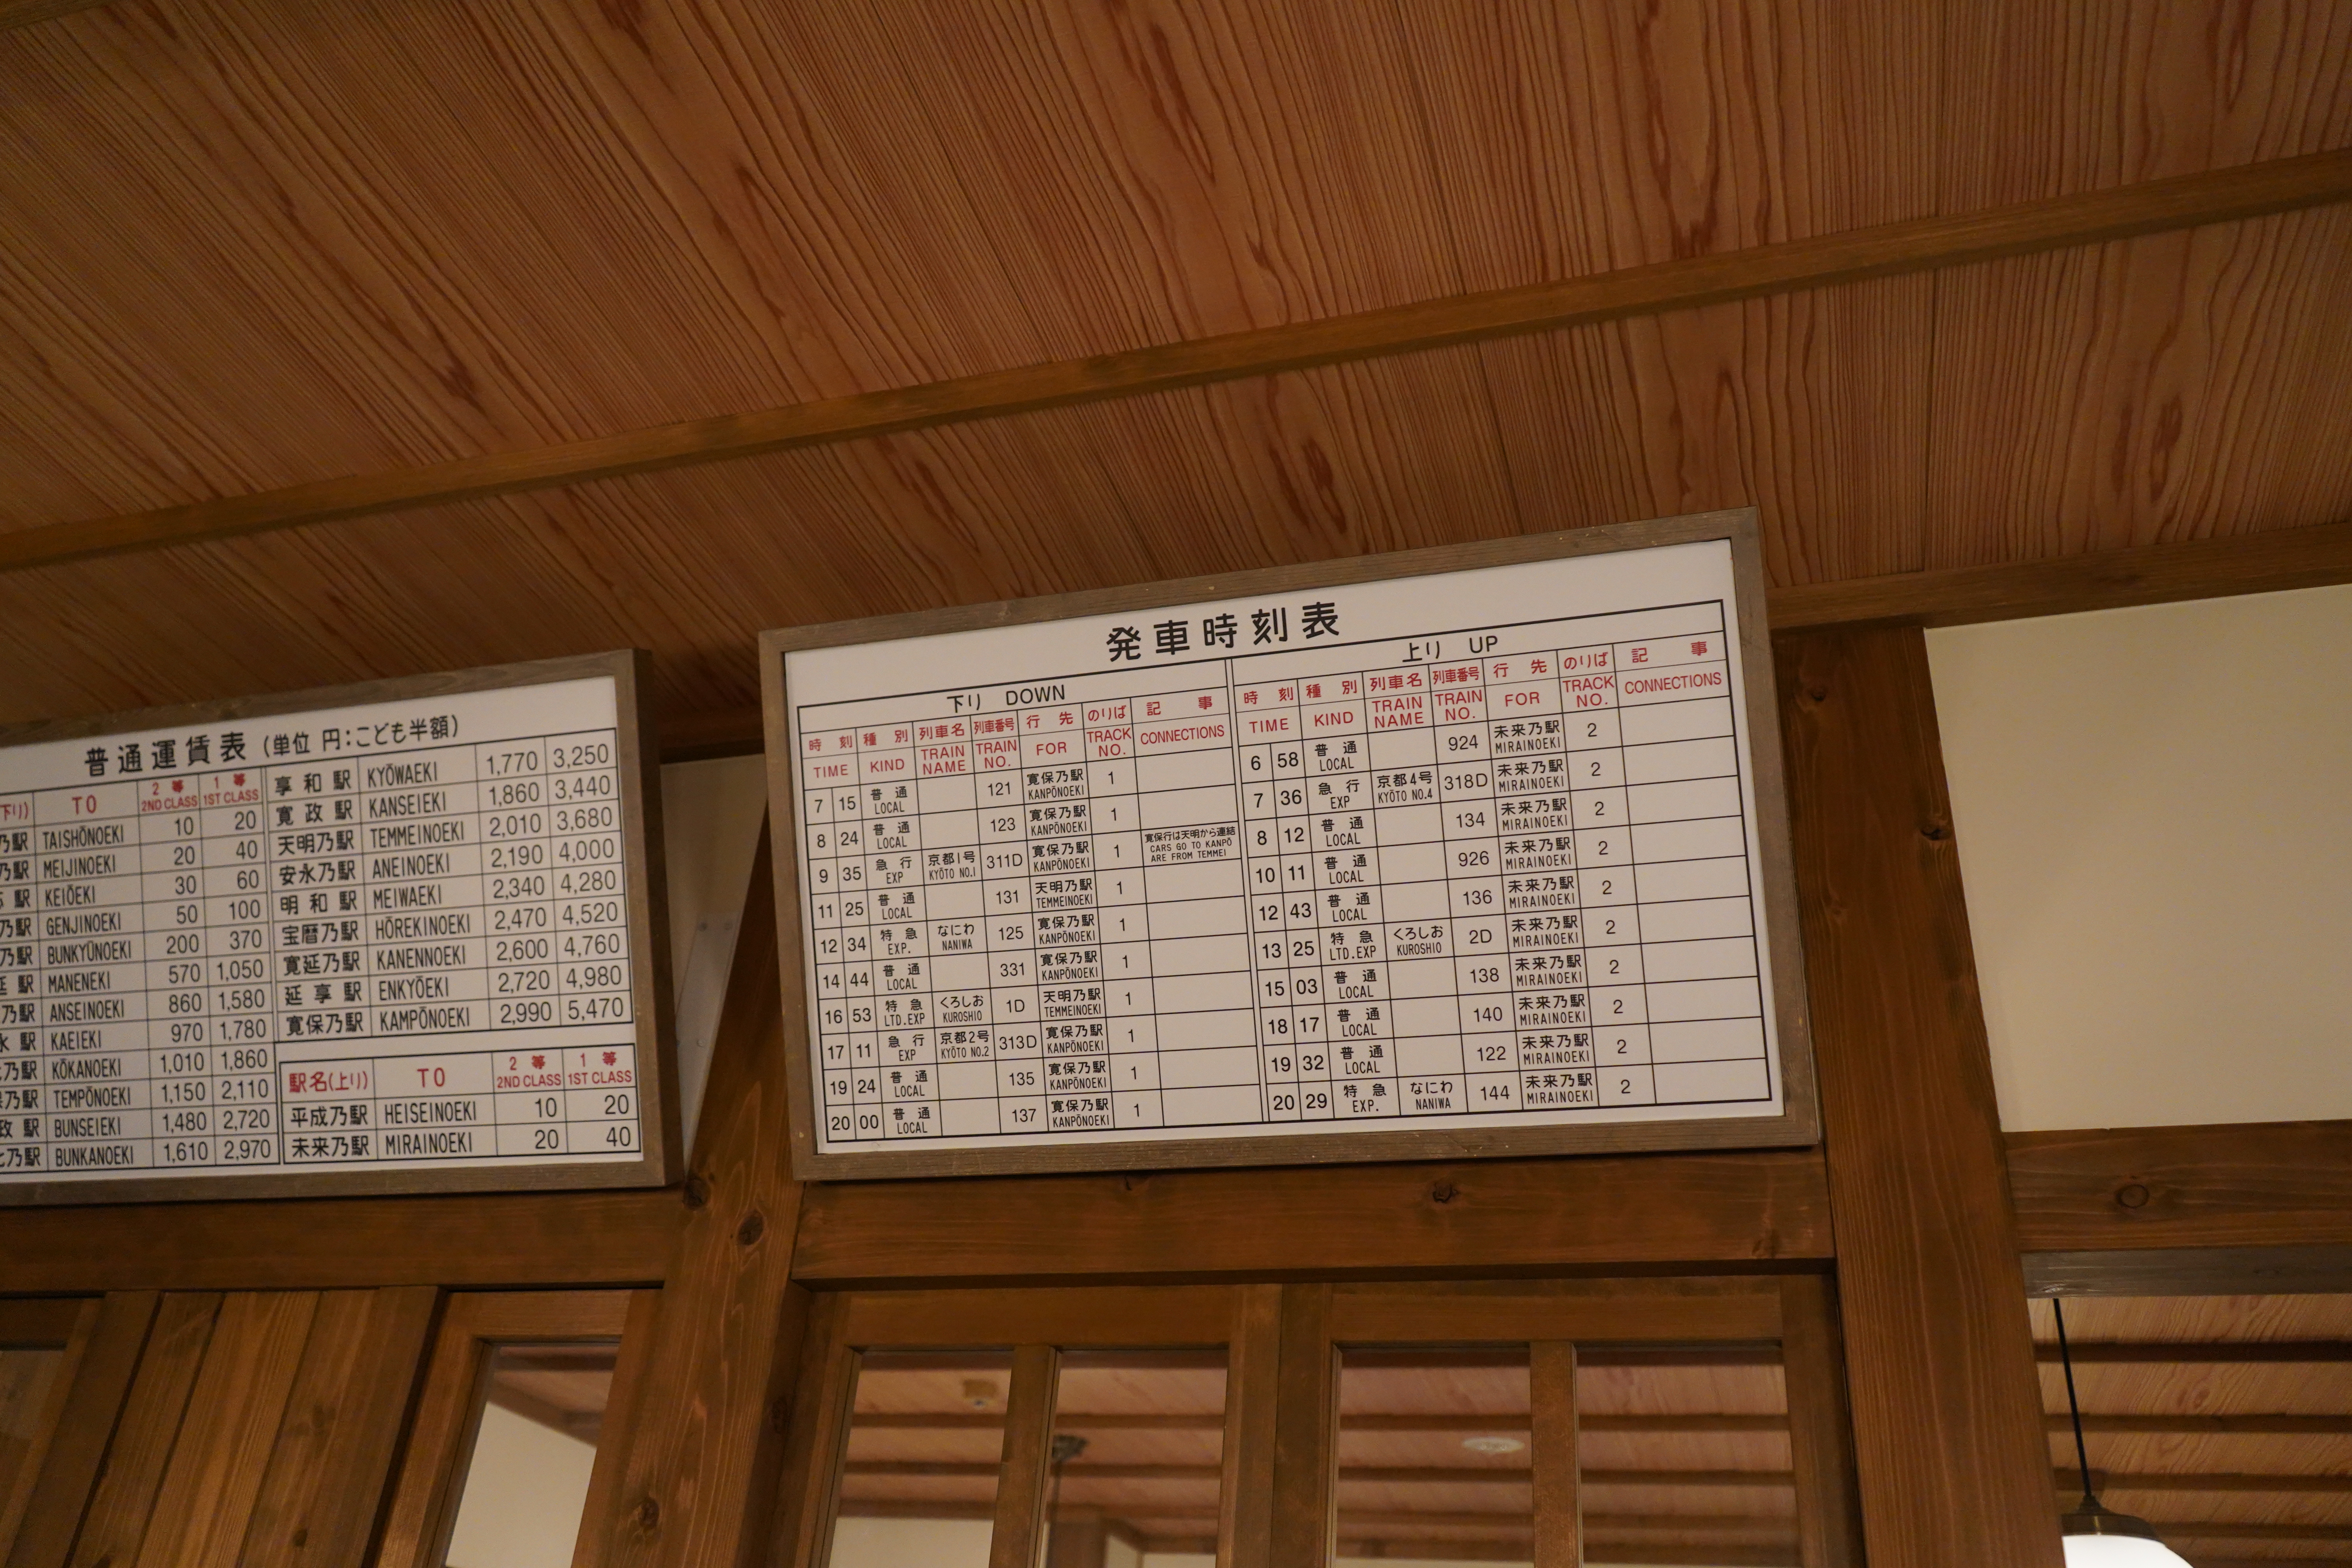 普通運賃表 (単位 円:こども半額)
下り) TO 2等 2ND CLASS 1等 1ST CLASS
乃駅 TAISHŌNOEKI 10 20
乃駅 MEIJINOEKI 20 40
駅 KEIŌEKI 30 60
乃駅 GENJINOEKI 50 100
乃駅 BUNKYŪNOEKI 200 370
延駅 MANENEKI 570 1,050
乃駅 ANSEINOEKI 860 1,580
永駅 KAEIEKI 970 1,780
乃駅 KŌKANOEKI 1,010 1,860
乃駅 TEMPŌNOEKI 1,150 2,110
政駅 BUNSEIEKI 1,480 2,720
乃駅 BUNKANOEKI 1,610 2,970
享和駅 KYŌWAEKI 1,770 3,250
寛政駅 KANSEIEKI 1,860 3,440
天明乃駅 TEMMEINOEKI 2,010 3,680
安永乃駅 ANEINOEKI 2,190 4,000
明和駅 MEIWAEKI 2,340 4,280
宝暦乃駅 HŌREKINOEKI 2,470 4,520
寛延乃駅 KANENNOEKI 2,600 4,760
延享駅 ENKYŌEKI 2,720 4,980
寛保乃駅 KAMPŌNOEKI 2,990 5,470
駅名(上り) TO 2等 2ND CLASS 1等 1ST CLASS
平成乃駅 HEISEINOEKI 10 20
未来乃駅 MIRAINOEKI 20 40
発車時刻表
下り DOWN
時刻 種別 列車名 列車番号 行先 のりば 記事
TIME KIND TRAIN NAME TRAIN NO. FOR TRACK NO. CONNECTIONS
7 15 普通 LOCAL 121 寛保乃駅 KANPŌNOEKI 1
8 24 普通 LOCAL 123 寛保乃駅 KANPŌNOEKI 1
9 35 急行 EXP 京都1号 KYŌTO NO.1 311D 寛保乃駅 KANPŌNOEKI 1 寛保行は天明から連結 CARS GO TO KANPŌ ARE FROM TEMMEI
11 25 普通 LOCAL 131 天明乃駅 TEMMEINOEKI 1
12 34 特急 EXP. なにわ NANIWA 125 寛保乃駅 KANPŌNOEKI 1
14 44 普通 LOCAL 331 寛保乃駅 KANPŌNOEKI 1
16 53 特急 LTD.EXP くろしお KUROSHIO 1D 天明乃駅 TEMMEINOEKI 1
17 11 急行 EXP 京都2号 KYŌTO NO.2 313D 寛保乃駅 KANPŌNOEKI 1
19 24 普通 LOCAL 135 寛保乃駅 KANPŌNOEKI 1
20 00 普通 LOCAL 137 寛保乃駅 KANPŌNOEKI 1
上り UP
時刻 種別 列車名 列車番号 行先 のりば 記事
TIME KIND TRAIN NAME TRAIN NO. FOR TRACK NO. CONNECTIONS
6 58 普通 LOCAL 924 未来乃駅 MIRAINOEKI 2
7 36 急行 EXP 京都4号 KYŌTO NO.4 318D 未来乃駅 MIRAINOEKI 2
8 12 普通 LOCAL 134 未来乃駅 MIRAINOEKI 2
10 11 普通 LOCAL 926 未来乃駅 MIRAINOEKI 2
12 43 普通 LOCAL 136 未来乃駅 MIRAINOEKI 2
13 25 特急 LTD.EXP くろしお KUROSHIO 2D 未来乃駅 MIRAINOEKI 2
15 03 普通 LOCAL 138 未来乃駅 MIRAINOEKI 2
18 17 普通 LOCAL 140 未来乃駅 MIRAINOEKI 2
19 32 普通 LOCAL 122 未来乃駅 MIRAINOEKI 2
20 29 特急 EXP. なにわ NANIWA 144 未来乃駅 MIRAINOEKI 2